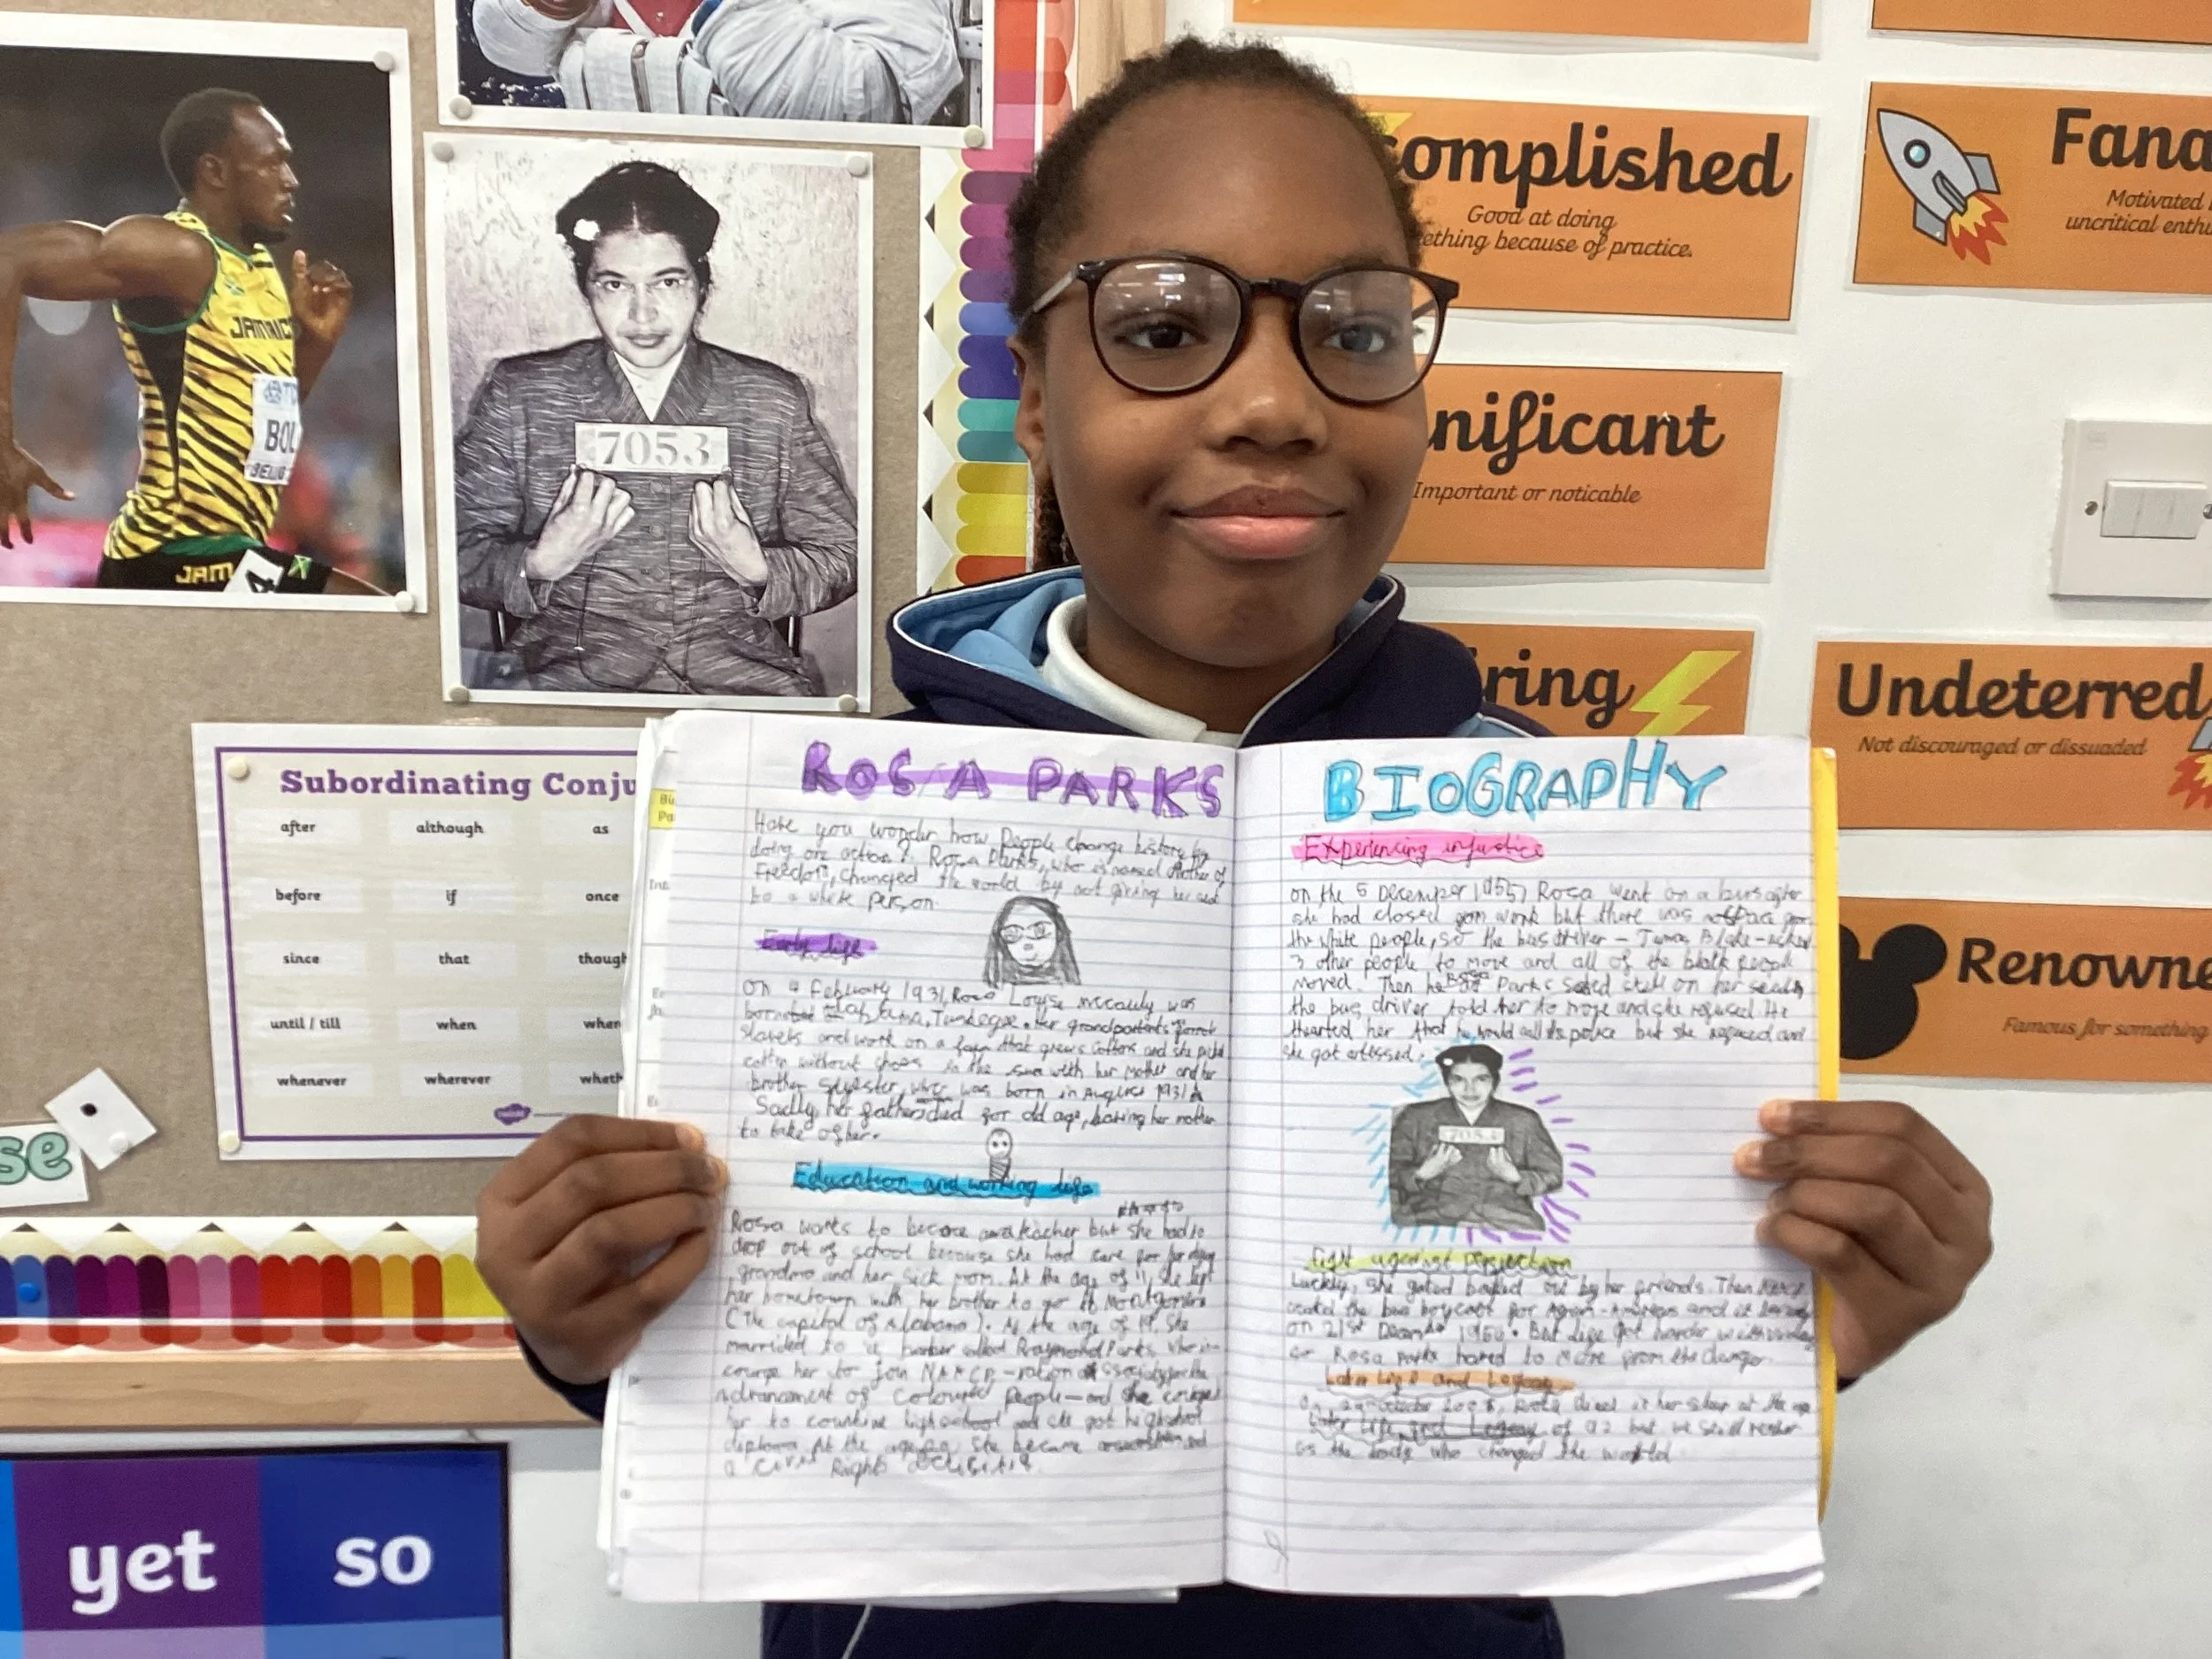 JAMAICA
BOL
BEIJING
JAM
7053
complished
Good at doing
ething because of practice.
Fana
Motivated
uncritical enthu
nificant
Important or noticable
iring
Undeterred
Not discouraged or dissuaded
Renowne
Famous for something
Subordinating Conju
after although as
before if once
since that though
until / till when wher
whenever wherever wheth
se
yet so
ROSA PARKS
Have you wonder how People change history by
doing one action? Rosa Parks, who is named Mother of
Freedom, changed the world by not giving her seat
to a white person.
Early life
On 4 February 1931, Rosa Louise mccauly was
born Alabama, Tuskegee. Her grandparents
slaves and work on a farm that grows cottons and she picks
cotton without shoes in the sun with her mother and her
brother Sylvester, was born in August 1931
Sadly, her father died for old age, leaving her mother
to take of her.
Education and working life
Rosa wants to become a teacher but she had to
drop out of school because she had care for her dying
grandma and her sick mom. At the age of 11, she left
her hometown with her brother to go to Montgomery
(The capital of Alabama). At the age of 19, she
married to a barber called Raymond Parks who in-
courge her to join
advancement of Coloured People-and she
her to countine highschool and she got highschool
diploma. At the age she became and
a Civil Rights
BIOGRAPHY
Experiencing injustice
on the 5 December 1955, Rosa went on a bus after
she had closed gom work but there was no space gor
the white people, so the bus driver - James Blake - asked
3 other people to move and all of the black people
moved. Then he Rosa Parks sated still on her seat,
the bus driver told her to move and she refused. He
thearted her that he would call the police but she refused and
she got arrested.
7053
Fight against
Luckly, she goted bailed out by her friends. Then
the bus boycott for and it
on 21st 1956. But life got harder
so Rosa Parks hared to move from the danger.
Later life and Legacy
On, 24 October 2005, Rosa died in her sleep at the age
Later Life and Legacy of 92 but we still
as the lady who changed the world